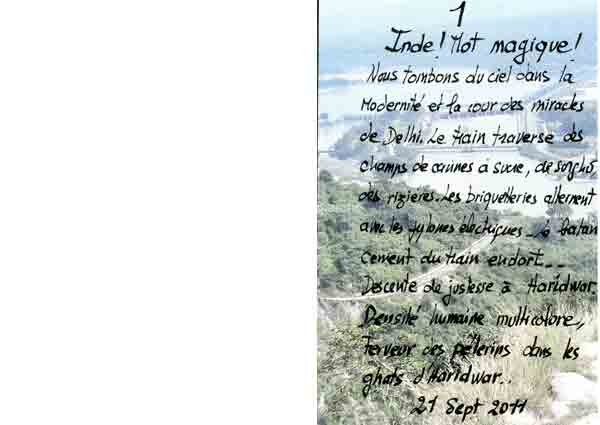 1
Inde! Mot magique!
Nous tombons du ciel dans la
Modernité et la cour des miracles
de Delhi. Le train traverse des
champs de cannes à sucre, de sorgho
des rizières. Les briquetteries alternent
avec les pylones électriques _ le balan
cement du train endort _ _
Descente de justesse à Haridwar
Densité humaine multicolore,,
Ferveur des pélerins dans les
ghats d'Haridwar..
21 Sept 2011